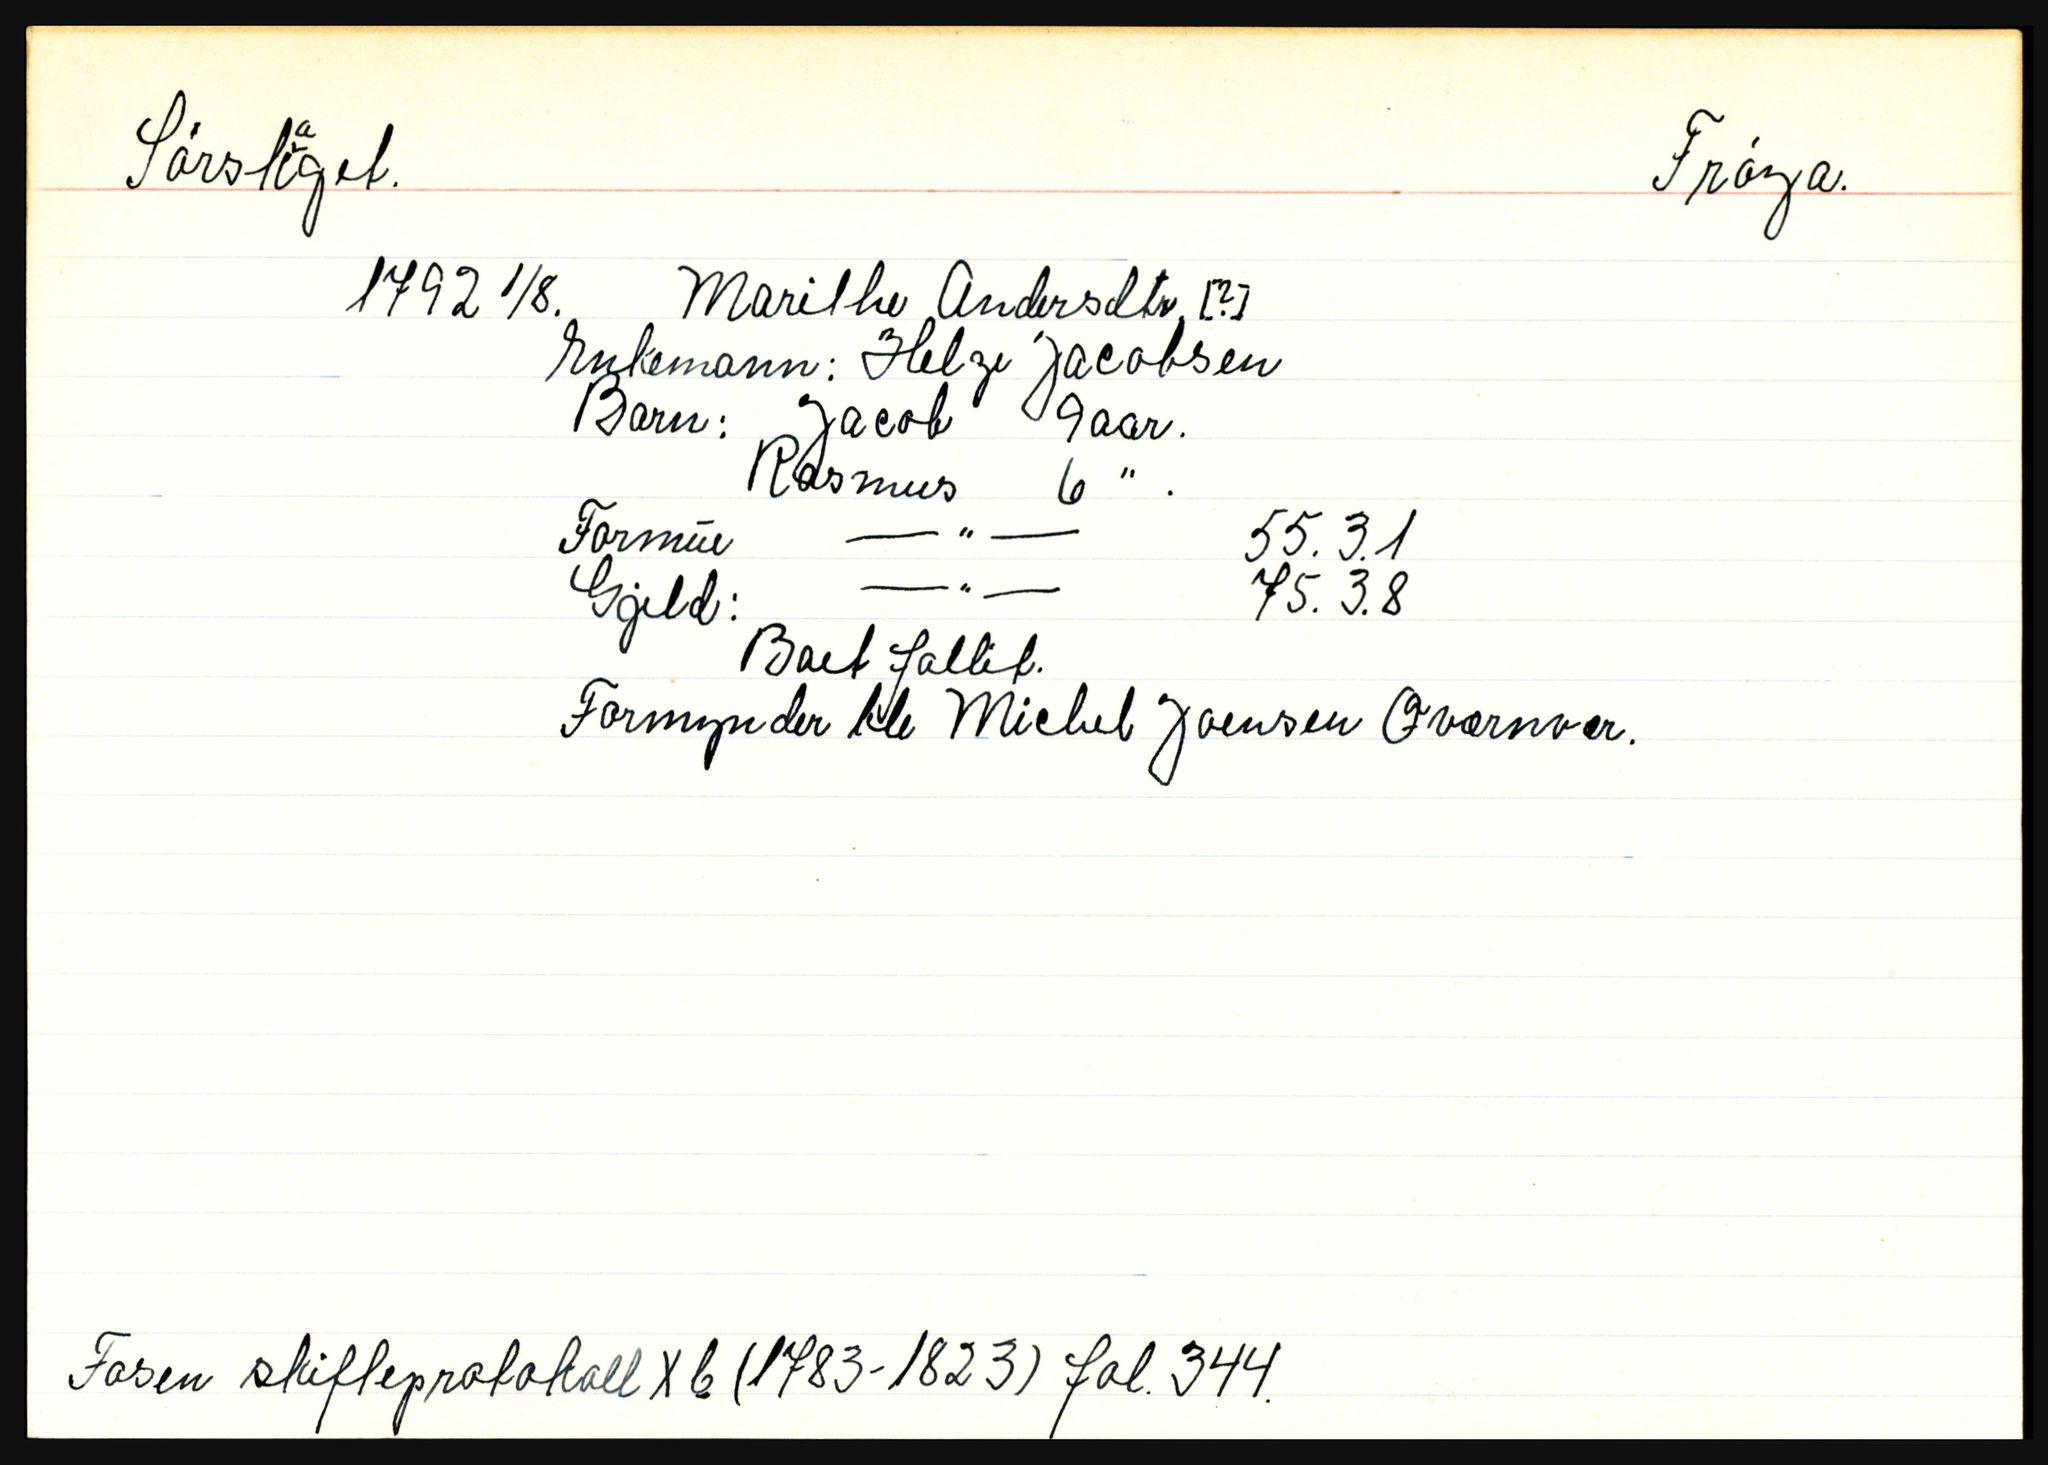 Sörstäget. Fröya.
1792 1/8. Marithe Andersdtr. [?]
Enkemann: Helge Jacobsen
Barn: Jacob 9 aar.
Rasmus 6 " .
Formüe — " — 55. 3. 1
Gjeld: — " — 75. 3. 8
Boet fallit.
Formynder ble Michel Joensen Qværnvær.
Fosen skifteprotokoll X b (1783-1823) fol. 344.